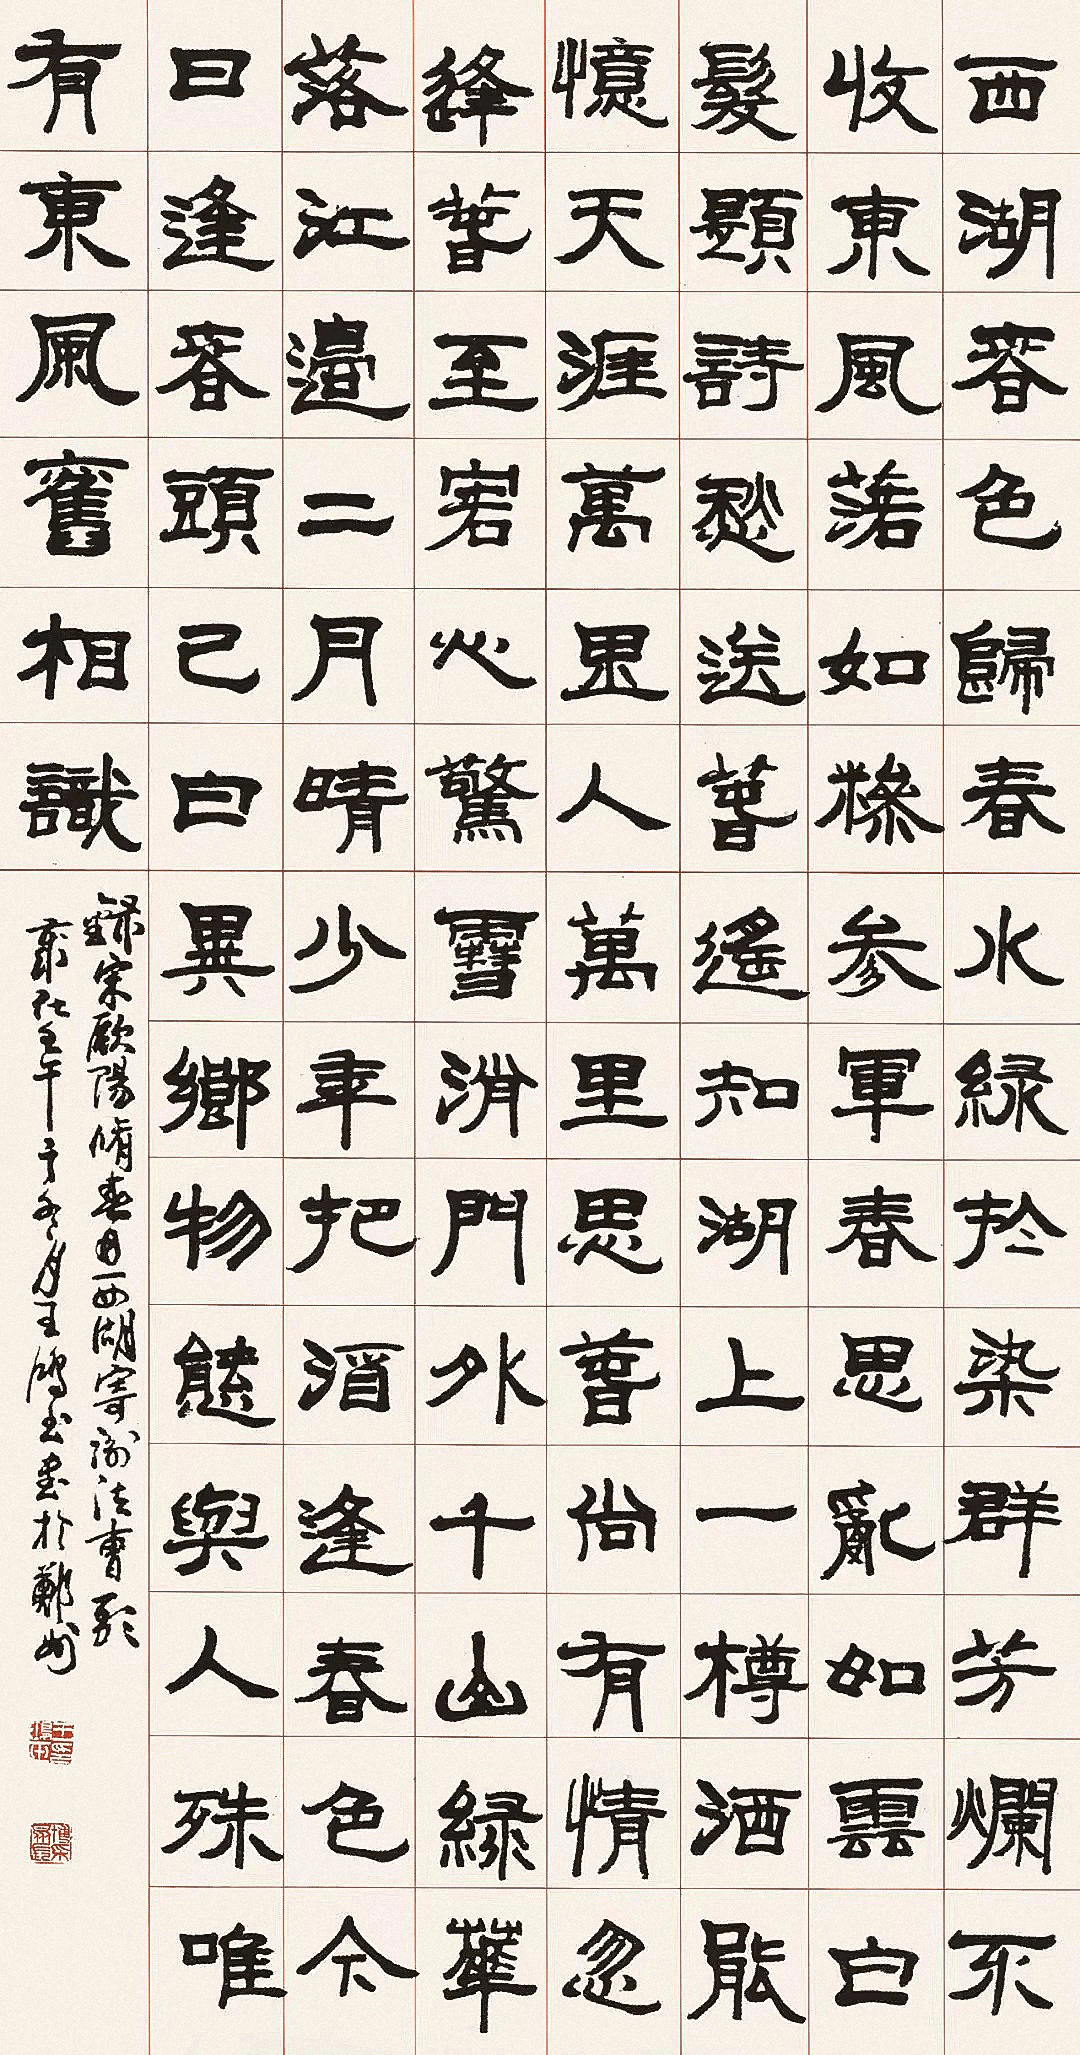 西湖春色歸春水緑於染群芳爛不
收東風落如糝參軍春思亂如雲白
髮題詩愁送春遥知湖上一樽酒能
憶天涯萬里人萬里思春尚有情忽
逢春至客心驚雪消門外千山緑華
落江邊二月晴少年把酒逢春色今
日逢春頭已白異鄉物態與人殊唯
有東風舊相識
錄宋歐陽脩春日西湖寄謝法曹歌
歲在壬午之冬月王鴻玉書於鄭州